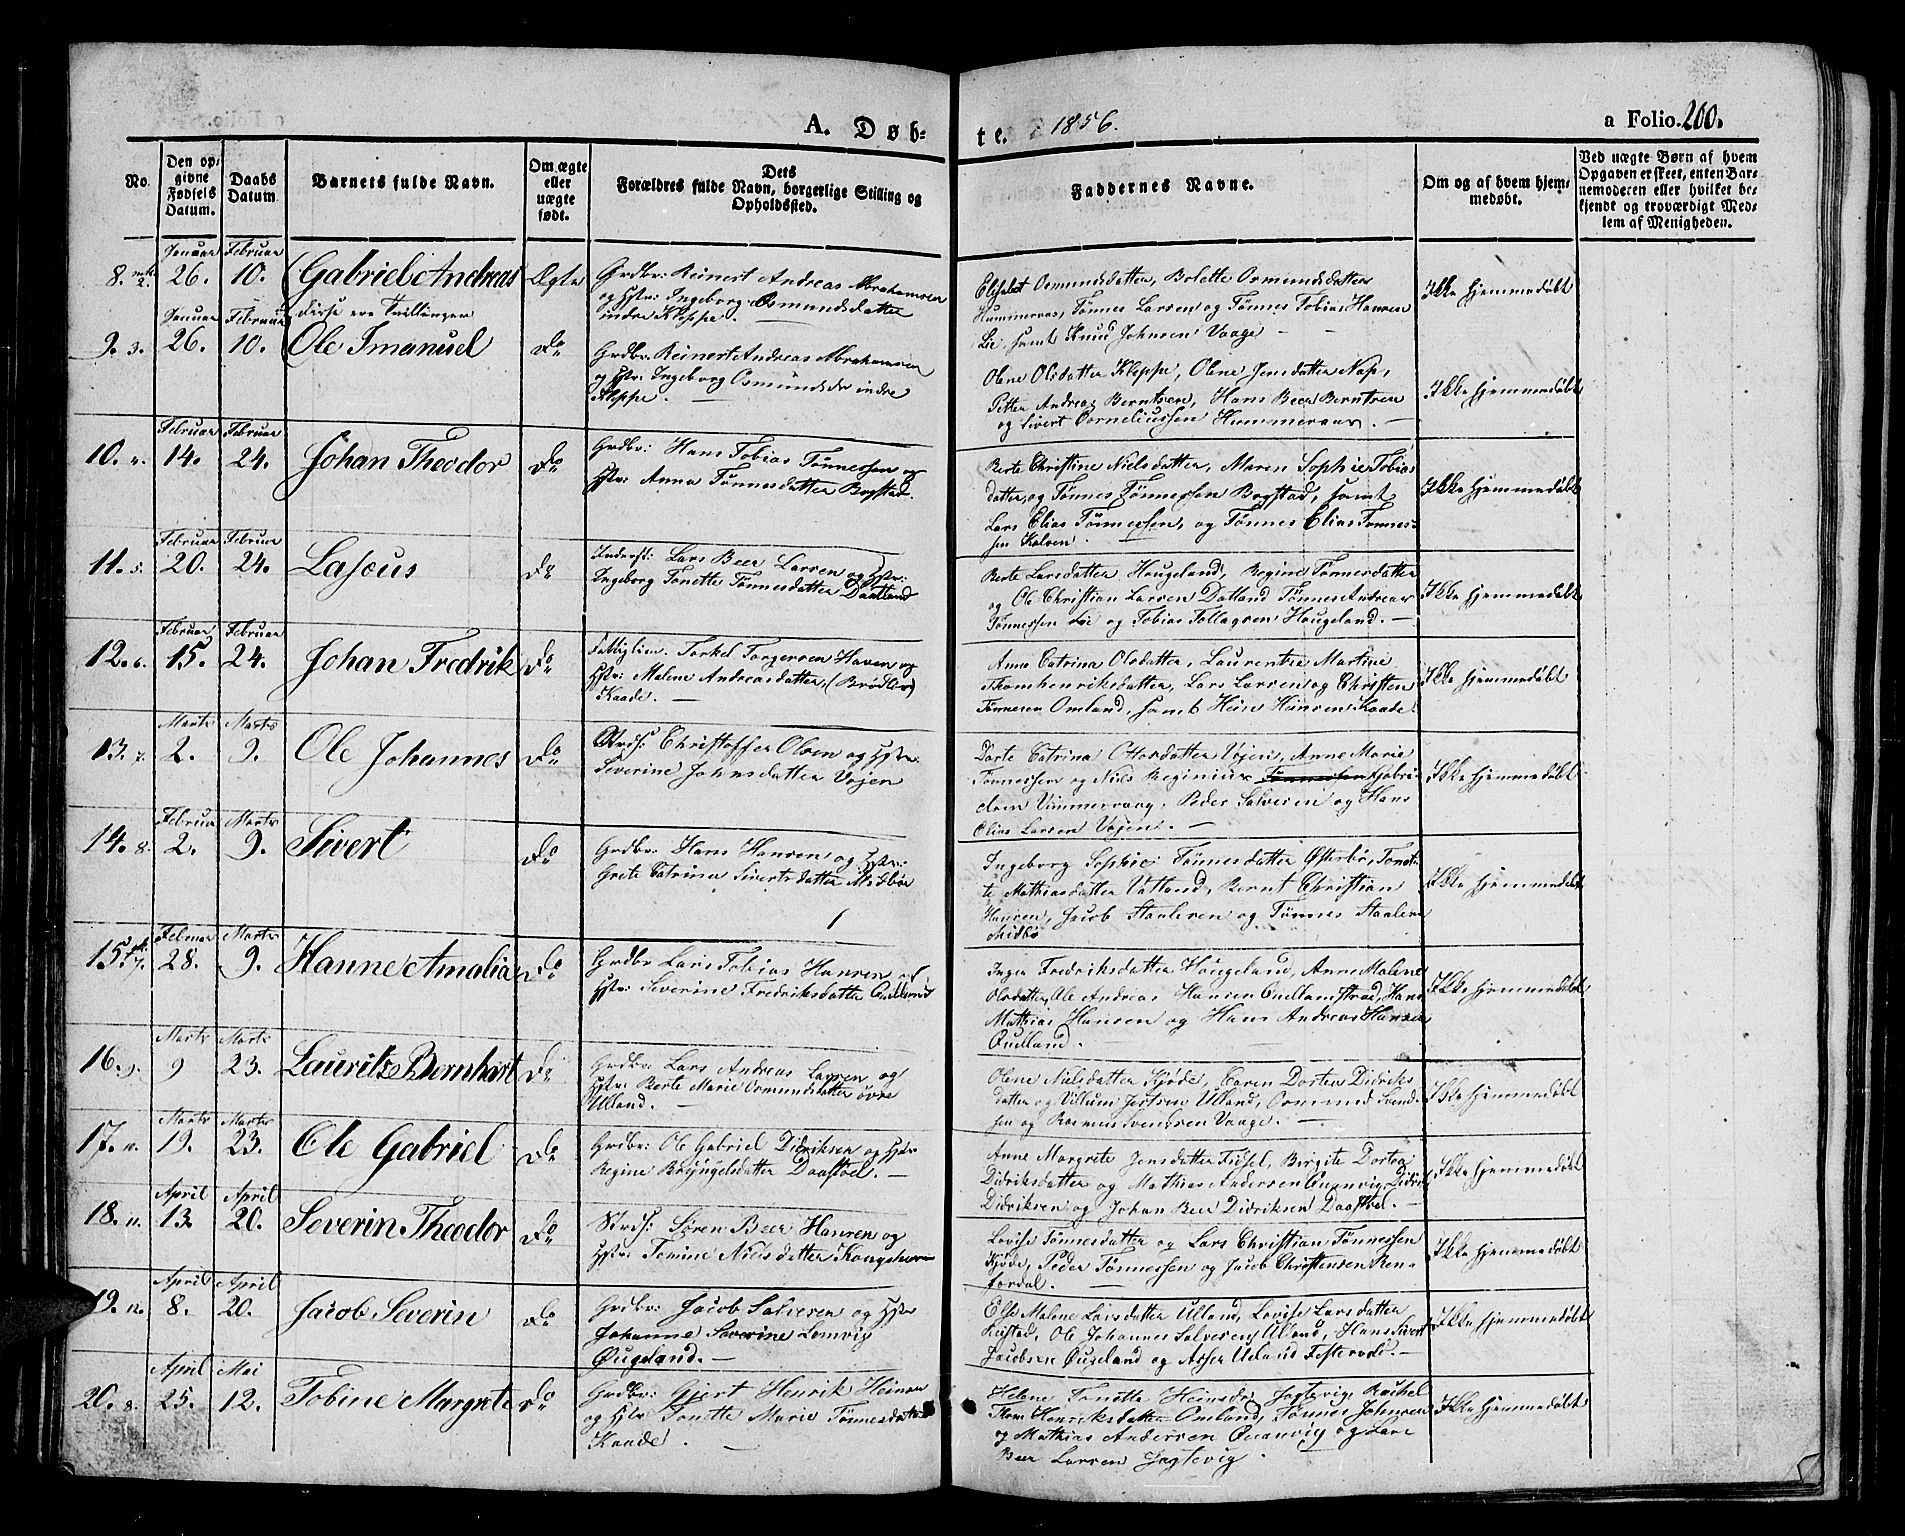 A. Døb-
te. 1856.
a Folio. 200.
No.
Den op-
givne
Fødsels
Datum.
Daabs
Datum
Barnets fulde Navn.
Om ægte
eller
uægte
født.
Dets
Forældres fulde Navn, borgerlige Stilling og
Opholdssted.
Faddernes Navne.
Om og af hvem hjem-
medøbt.
Ved uægte Børn af hvem
Opgaven er skeet, enten Bar-
nemoderen eller hvilket be-
kjendt og troværdigt Med-
lem af Menigheden.
8. 2. Januar 26. Februar 10. Gabriel Andreas Ægte
Grdbr: Reinert Andreas Abrahamsen
og Hstr: Ingeborg Osmundsdatter
indre Kleppe. —
Elisabet Osmundsdatter, Bolette Osmundsdatter
Hummeraas, Tønnes Larsen og Tønnes Tobias Hansen
Lie, samt Knud Johnsen Vaage —
Ikke hjemmedøbt
disse ere Tvillinger
9. 3. Januar 26. Februar 10. Ole Imanuel Do
Grdbr: Reinert Andreas Abrahamsen
og Hstr: Ingeborg Osmundsdr indre
Kleppe. —
Olene Olsdatter Kleppe, Olene Jensdatter Nap,
Petter Andreas Berntsen, Hans Beer Berntsen
og Sivert Corneliussen Hummeraas. —
Ikke hjemmedøbt
10. 4. Februar 14. Februar 24. Johan Theodor Do
Grdbr: Hans Tobias Tønnessen og
Hstr: Anna Tønnesdatter Bogstad.
Berte Christine Nielsdatter, Maren Sophie Tobias
datter, og Tønnes Tønnessen Bogstad, samt
Lars Elias Tønnessen, og Tønnes Elias Tønnes-
sen Kalven. —
Ikke hjemmedøbt
11. 5. Februar 20. Februar 24. Lascus Do
Inderst: Lars Beer Larsen og Hstr:
Ingeborg Tonette Tønnesdatter Daatland
Berte Larsdatter Hougeland, Regine Tønnesdatter
og Ole Christian Larsen Datland Tønnes Andreas
Tønnessen Lie og Tobias Tollagsen Hougeland. —
Ikke hjemmedøbt
12. 6. Februar 15. Februar 24. Johan Fredrik Do
Fattiglem. Torkel Torgersen Haven og
Hstr: Malene Andreasdatter, (Brødløs)
Kaade. —
Anna Catrina Olsdatter, Laurentse Martine
Thomhenriksdatter, Lars Larsen og Christen
Tønnesen Omland, samt Hein Heinsen Kaade.
Ikke hjemmedøbt
13. 7. Marts 2. Marts 9. Ole Johannes Do
Strds: Christoffer Olsen og Hstr:
Severine Johnsdatter Vøjen
Dorte Catrina Ottosdatter Vøjen, Anne Marie
Tønnessen og Niels Reginius Tønnessen Gabri-
elsen Vimmersvag, Peder Salvesen og Hans
Elias Larsen Vøjen. —
Ikke hjemmedøbt
14. 8. Februar 2. Marts 9. Sivert Do
Grdbr: Hans Hansen og Hstr:
Grete Catrina Sivertsdatter Midbøe
Ingeborg Sophie Tønnesdatter Østerbø, Tonet-
te Mathiasdatter Vatland, Bernt Christian
Hansen, Jacob Staalesen og Tønnes Staalesen
Midbø
Ikke hjemmedøbt
15. 7. Februar 28. Marts 9. Hanne Amalia Do
Grdbr Lars Tobias Hansen og
Hstr: Severine Fredriksdatter Ouelland
Inger Fredriksdatter Hougeland, Anne Malene
Olsdatter, Ole Andreas Hansen Ouellandstrad, Hans
Mathias Hansen og Hans Andreas Hansen
Ouelland. —
Ikke hjemmedøbt
16. 9. Marts 9 Marts 23. Lauritz Bernhart Do
Grdbr: Lars Andreas Larsen og
Hstr: Berte Marie Osmundsdatter øvre
Ulland. —
Olene Nielsdatter Kjøde, Caren Dortea Didriks
datter og Villum Jertsen Ulland, Osmund Svend-
sen og Rasmus Svendsen Vaage. —
Ikke hjemmedøbt
17. Marts 19. Marts 23. Ole Gabriel Do
Grdbr: Ole Gabriel Didriksen og Hstr
Regine Brynjelsdatter Daastøel. —
Anne Margrete Jensdatter Fidsel, Birgite Dortea
Didriksdatter og Mathias Andersen Ouanvig, Didrik
Didriksen og Johan Beer Didriksen Daastøel. —
Ikke hjemmedøbt
18. 11. April 13. April 20. Severin Theodor Do
Strds: Søren Beer Hansen og
Hstr: Tomine Nielsdatter Kongshavn
Lovise Tønnesdatter og Lars Christian Tønnessen
Kjøde, Peder Tønnessen og Jacob Christensen Ren-
fordal. —
Ikke hjemmedøbt
19. 12. April 8. April 20. Jacob Severin Do
Grdbr: Jacob Salvesen og Hstr
Johanne Severine Lomvig
Øugeland. —
Else Malene Larsdatter Ulland, Lovise Larsdatter
Reistad, Ole Johannes Salvesen Ulland, Hans Sivert
Jacobsen Øugeland og Asser Ulland Festervold. —
Ikke hjemmedøbt
20. 8. April 25. Mai 12. Tobine Margrete Do
Grdbr: Gjert Henrik Heinsen
og Hstr Tonette Marie Tønnesdatter
Kaade. —
Helene Tonette Heinsdr Jagtevig, Rachel
Thom Henriksdatter Omland, Tønnes Johnsen
og Mathias Andersen Ouanvig og Lars
Beer Larsen Jagtevig
Ikke hjemmedøbt